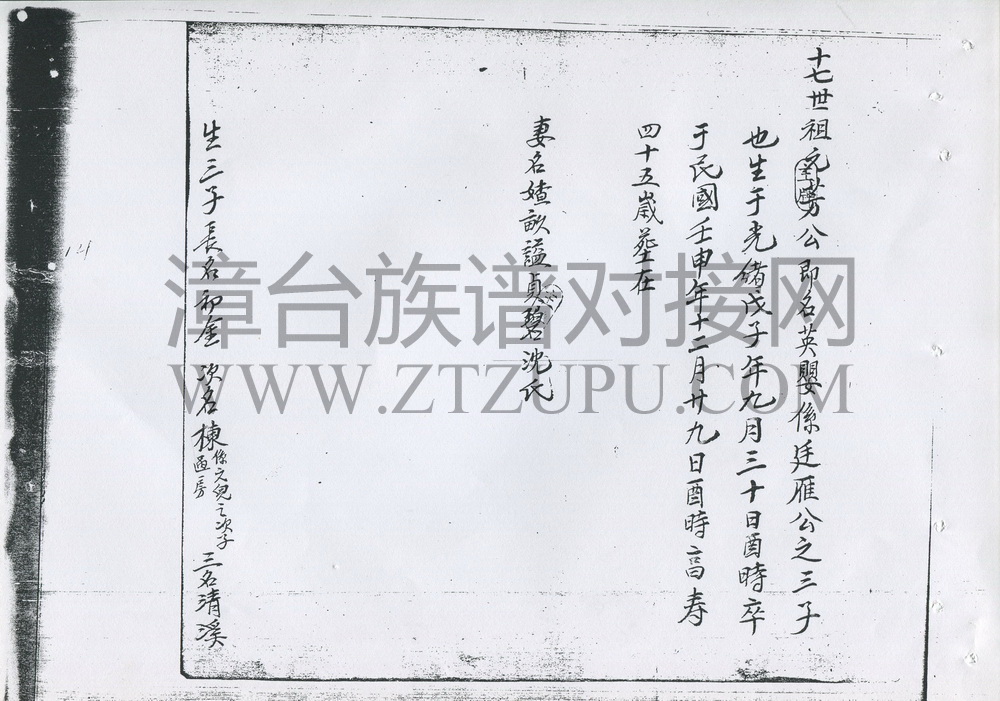 十七世祖元芳公即名英嬰係廷雁公之三子
也生于光緒戊子年九月三十日酉時卒
于民國壬申年十二月廿九日酉時高寿
四十五歲塟在
妻名㛼畝謚貞碧沈氏
生三子長名和金 次名棟係元兜之次子過房 三名清溪
14
漳台族谱对接网
WWW.ZTZUPU.COM